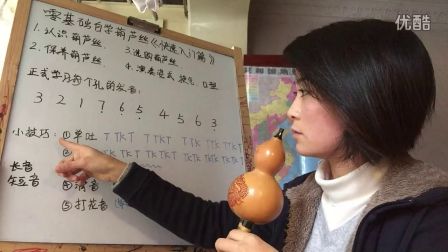 优酷
零基础自学葫芦丝《快速入门篇》
1.认识葫芦丝 3.选购葫芦丝
2.保养葫芦丝 4.演奏姿式 换气 口型
正式学习每个孔的发音:
3 2 1 7 6 5 4 5 6 3
小技巧: ①单吐 T TKT TTKT TTKT
② TKTK TKTK TKTK
长音
④滑音
⑤打花音